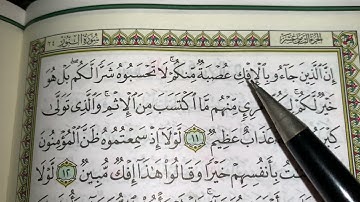 سُورَةُ النُّورِ
إِنَّ الَّذِينَ جَاءُو بِالْإِفْكِ عُصْبَةٌ مِّنكُمْ لَا تَحْسَبُوهُ شَرًّا لَّكُم بَلْ هُوَ
خَيْرٌ لَّكُمْ لِكُلِّ امْرِئٍ مِّنْهُم مَّا اكْتَسَبَ مِنَ الْإِثْمِ وَالَّذِي تَوَلَّىٰ
كِبْرَهُ عَذَابٌ عَظِيمٌ ١١ لَّوْلَا إِذْ سَمِعْتُمُوهُ ظَنَّ الْمُؤْمِنُونَ
بِأَنفُسِهِمْ خَيْرًا وَقَالُوا هَٰذَا إِفْكٌ مُّبِينٌ ١٢ لَّوْلَا